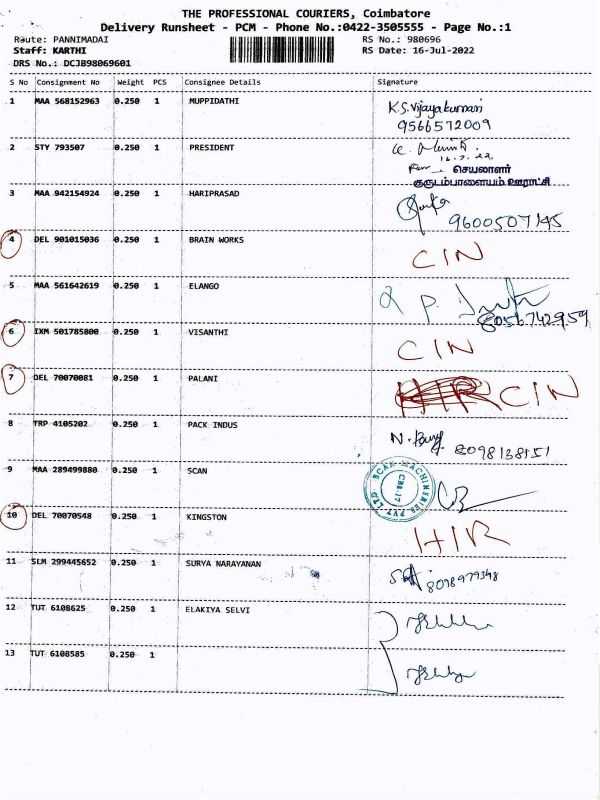 THE PROFESSIONAL COURIERS, Coimbatore
Delivery Runsheet - PCM - Phone No.:0422-3505555 - Page No.:1
Route: PANNIMADAI RS No.: 980696
Staff: KARTHI RS Date: 16-Jul-2022
DRS No.: DCJB98069601
S No Consignment No Weight PCS Consignee Details Signature
1 MAA 568152963 0.250 1 MUPPIDATHI K.S.Vijayakumari
9566572009
2 STY 793507 0.250 1 PRESIDENT
16.7.22
செயலாளர்
குருடம்பாளையம் ஊராட்சி
3 MAA 942154924 0.250 1 HARIPRASAD
9600507145
4 DEL 901015036 0.250 1 BRAIN WORKS CIN
5 MAA 561642619 0.250 1 ELANGO
8056742959
6 IXM 501785800 0.250 1 VISANTHI CIN
7 DEL 70070081 0.250 1 PALANI CIN
8 TRP 4105202 0.250 1 PACK INDUS N.
8098138151
9 MAA 289499880 0.250 1 SCAN SCAN MACHINERIES PVT LTD CBE-17
10 DEL 70070548 0.250 1 KINGSTON HIR
11 SLM 299445652 0.250 1 SURYA NARAYANAN
8098979348
12 TUT 6108625 0.250 1 ELAKIYA SELVI
13 TUT 6108585 0.250 1